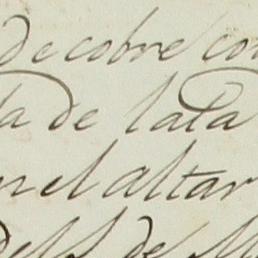 de cobre con
la de lata
en el altar
de